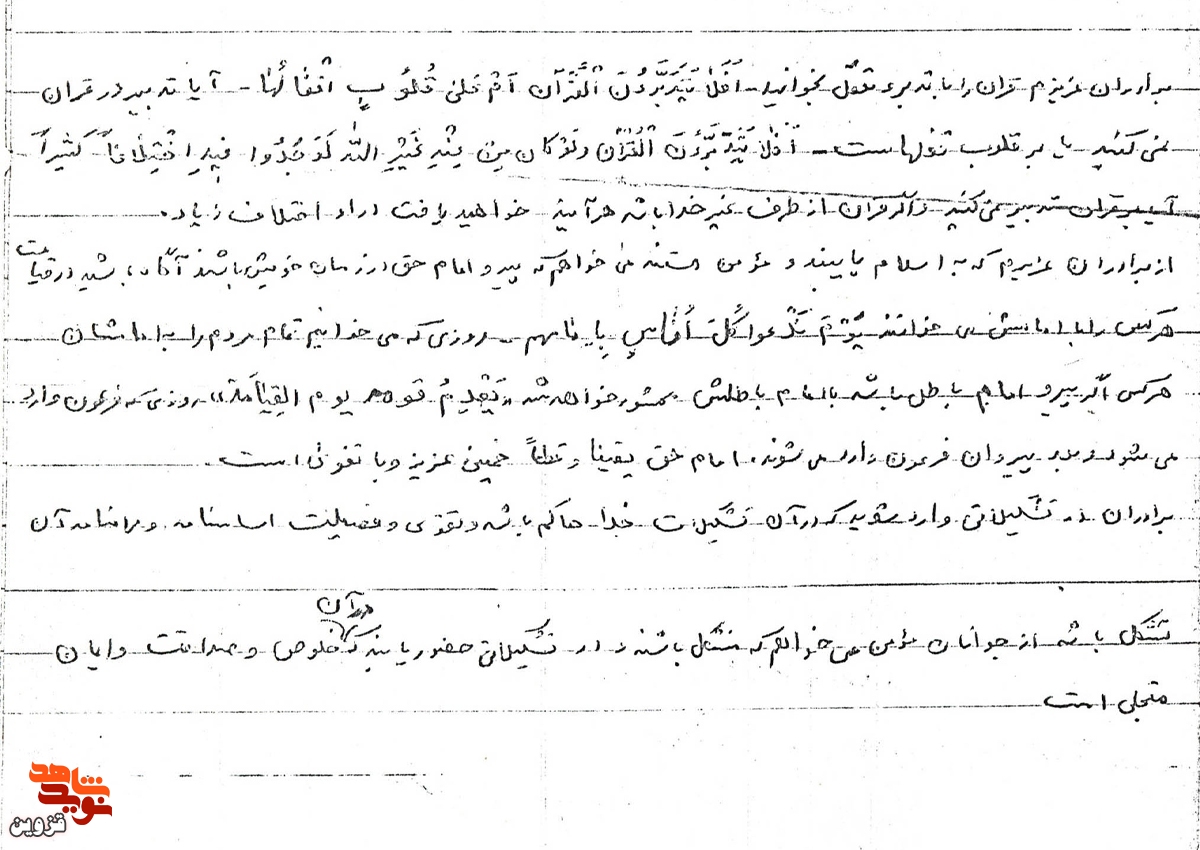 برادران عزیزم قرآن را با تدبر و تعقل بخوانید - اَفَلاٰ یَتَدَبَّرُونَ الْقُرْآنَ اَمْ عَلیٰ قُلُوُبٍ اَقْفاٰلُهاٰ - آیا تدبیر در قرآن
نمی کنید یا بر قلوب قفلهاست - اَفَلاٰ یَتَدَبَّرُونَ الْقُرْآنَ وَلَوْ کاٰنَ مِنْ عِنْدِ غَیْرِ اللّٰهِ لَوَجَدُوا فیهِ اخْتِلاٰفاً کَثیٖراً
آیا بر قرآن تدبیر نمی کنید و اگر قرآن از طرف غیر خدا باشد هر آینه خواهید یافت در او اختلاف زیاد.
از برادران عزیزم که به اسلام پایبند و مؤمن هستند می خواهم که پیرو امام حق در زمان خویش باشند آگاه باشید در قیامت
هرکس را با امامش می خوانند یَوْمَ نَدْعوا کُلَّ اُناٰسٍ بِاِمٰامِهِم - روزی که می خوانیم تمام مردم را به امامشان
هرکس اگر پیرو امام باطل باشد با امام باطلش محشور خواهد شد «یَقْدِمُ قَومَهُ یوم القِیٰاَمَة» روزی که فرعون وارد
می شود و پیروان فرعون وارد می شوند. امام حق یقیناً و قطعاً خمینی عزیز و با تقویٰ است.
برادران در تشکیلاتی وارد شوید که در آن تشکیلات خدا حاکم باشد و تقوی و فضیلت اساسنامه و مرامنامه آن
تشکل باشد از جوانان مؤمن می خواهم که متشکل باشند و در تشکیلاتی حضور یابند که در آن خلوص و صداقت و ایمان
متجلی است
شاهد
نوید
قزوین